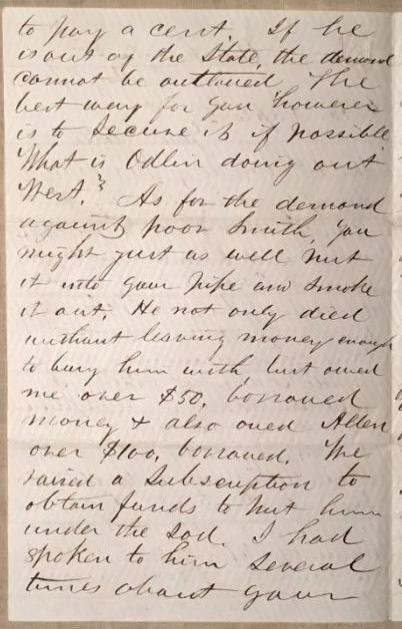 to pay a cent. If he
is out of the State, the demand
cannot be outlawed. The
best way for you however
is to secure it if possible
What is Odlin doing out
West? As for the demand
against poor Smith, you
might just as well put
it into your pipe and smoke
it out. He not only died
without leaving money enough
to bury him with, but owed
me over $50, borrowed
money & also owed Allen
over $100, borrowed. We
raised a subscription to
obtain funds to put him
under the sod. I had
spoken to him several
times about your